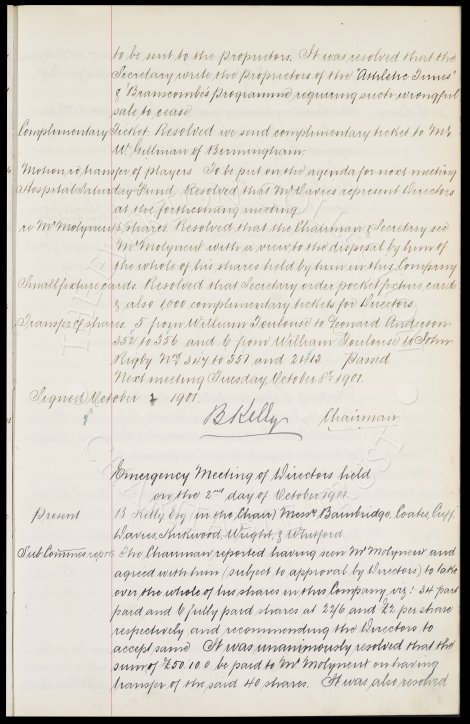 to be sent to the proprietors. It was resolved that the
Secretary write the proprietors of the "Athletic Times"
& "Branscombe's programme requiring such wrongful
sale to cease
Complimentary Ticket. Resolved we send complimentary ticket to Mr
W. Gillman of Birmingham
Motion re transfer of players. To be put on the agenda for next meeting
Hospital Saturday Fund. Resolved that Mr Davies represent Directors
at the forthcoming meeting
re Mr Molyneux's shares Resolved that the Chairman & Secretary see
Mr Molyneux with a view to the disposal by him of
the whole of his shares held by him in this Company
Small fixture cards. Resolved that Secretary order pocket fixture card
& also 1,000 complimentary tickets for Directors.
Transfer of shares. 5 from William Toulouse to Leonard Anderson
352 to 356 and 6 from William Toulouse to John
Rigby Nos 347 to 351 and 2413. Passed
Next meeting Tuesday, October 8th 1901.
Signed October 1901.
B Kelly Chairman
Emergency Meeting of Directors held
on the 2nd day of October 1901
Present B Kelly Esq (in the Chair) Messrs Bainbridge, Coates, Cuff
Davies, Kirkwood, Wright, & Whitford
Sub Commees report The Chairman reported having seen Mr Molyneux and
agreed with him (subject to approval by Directors) to take
over the whole of his shares in this Company, viz: 34 part
paid and 6 fully paid shares at 22/6 and £2 per share
respectively and recommending the Directors to
accept same It was unanimously resolved that the
sum of £50 10 0 be paid to Mr Molyneux on having
transfer of the said 40 shares. It was also resolved